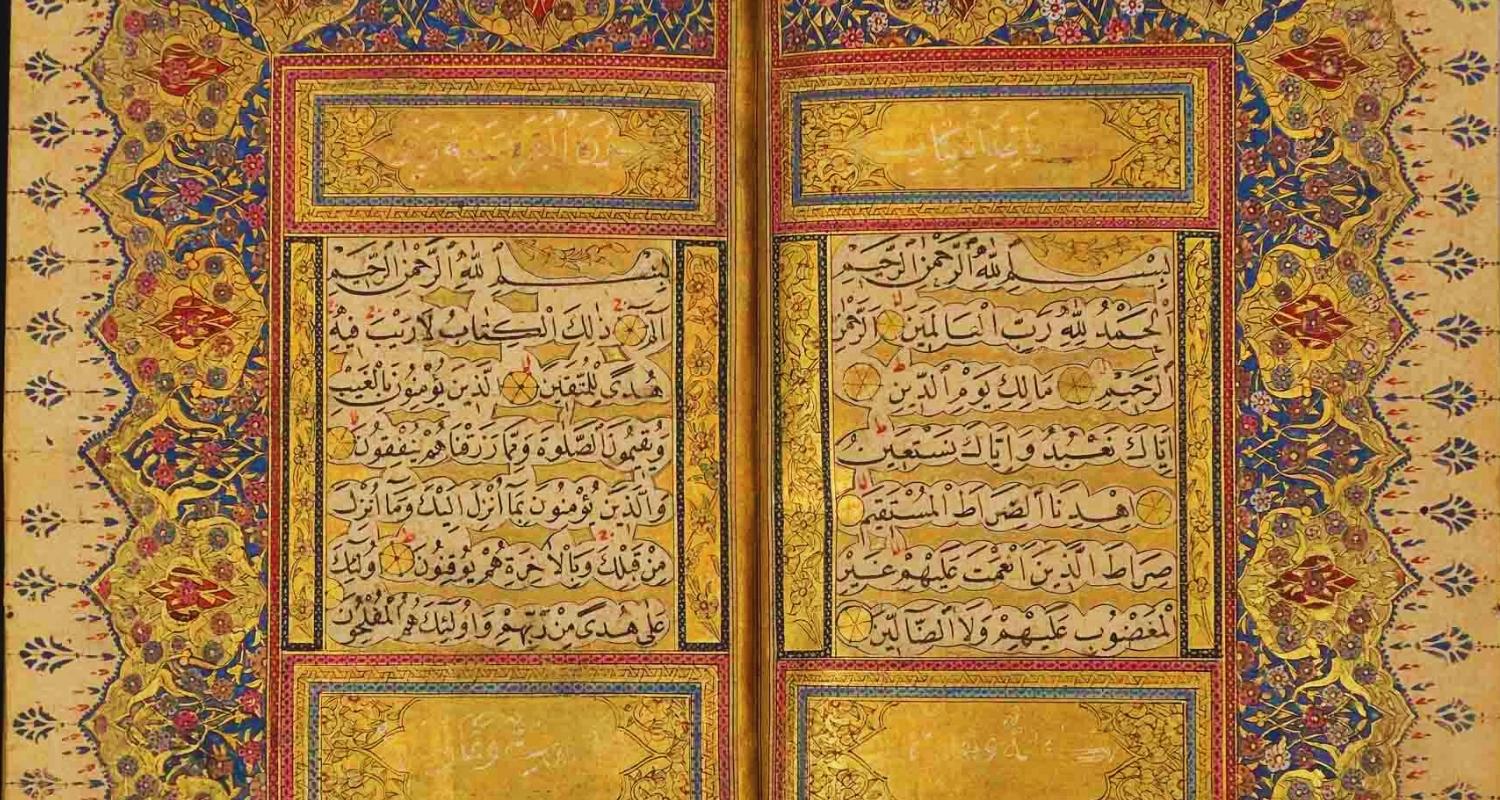 بِسْــــمِ اللّٰهِ الرَّحْمٰنِ الرَّحِيْمِ
اَلْحَمْدُ لِلّٰهِ رَبِّ الْعَالَمِينَ الرَّحْمٰنِ
الرَّحِيمِ مَالِكِ يَوْمِ الدِّينِ
اِيَّاكَ نَعْبُدُ وَاِيَّاكَ نَسْتَعِينُ
اِهْدِنَا الصِّرَاطَ الْمُسْتَقِيمَ
صِرَاطَ الَّذِينَ اَنْعَمْتَ عَلَيْهِمْ غَيْرِ
الْمَغْضُوبِ عَلَيْهِمْ وَلَا الضَّالِّينَ
سورة البقرة
بِسْــــمِ اللّٰهِ الرَّحْمٰنِ الرَّحِيمِ
الٓمٓ ذٰلِكَ الْكِتَابُ لَا رَيْبَ فِيهِ
هُدًى لِلْمُتَّقِينَ الَّذِينَ يُؤْمِنُونَ بِالْغَيْبِ
وَيُقِيمُونَ الصَّلٰوةَ وَمِمَّا رَزَقْنَاهُمْ يُنْفِقُونَ
وَالَّذِينَ يُؤْمِنُونَ بِمَا اُنْزِلَ اِلَيْكَ وَمَا اُنْزِلَ
مِنْ قَبْلِكَ وَبِالْاٰخِرَةِ هُمْ يُوقِنُونَ اُولٰئِكَ
عَلٰى هُدًى مِنْ رَبِّهِمْ وَاُولٰئِكَ هُمُ الْمُفْلِحُونَ